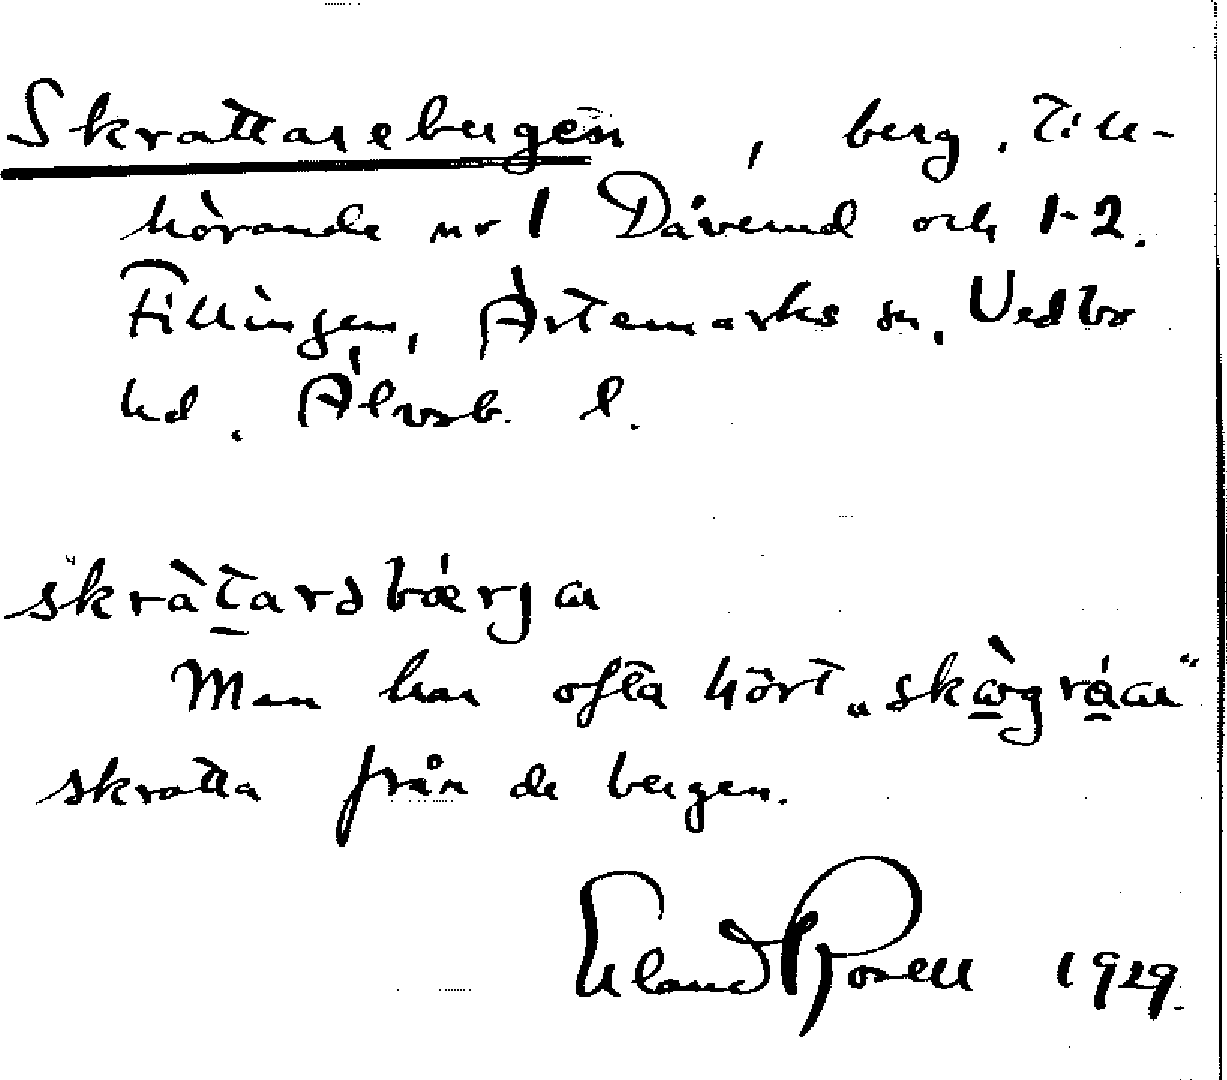 Skrattarebergen, berg, till-
hörande nr 1 Däverud och 1-2.
Fillingen, Ärtemarks sn, Vedbo
hd. Älvsb. l.
skràt̲arəbǽrjaɹ
Man har ofta hört „skògråaɹ"
skratta från de bergen.
Erland Rosell 1929.